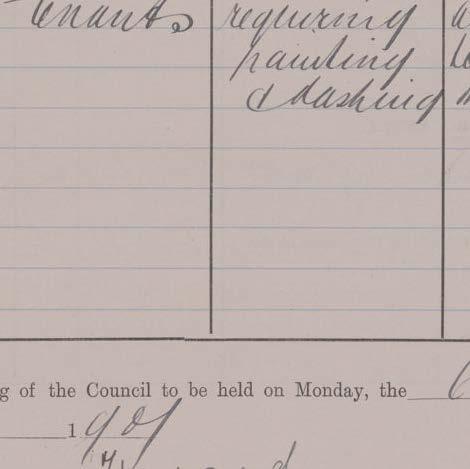 tenants requiring
painting
& dashing
g of the Council to be held on Monday, the
1907